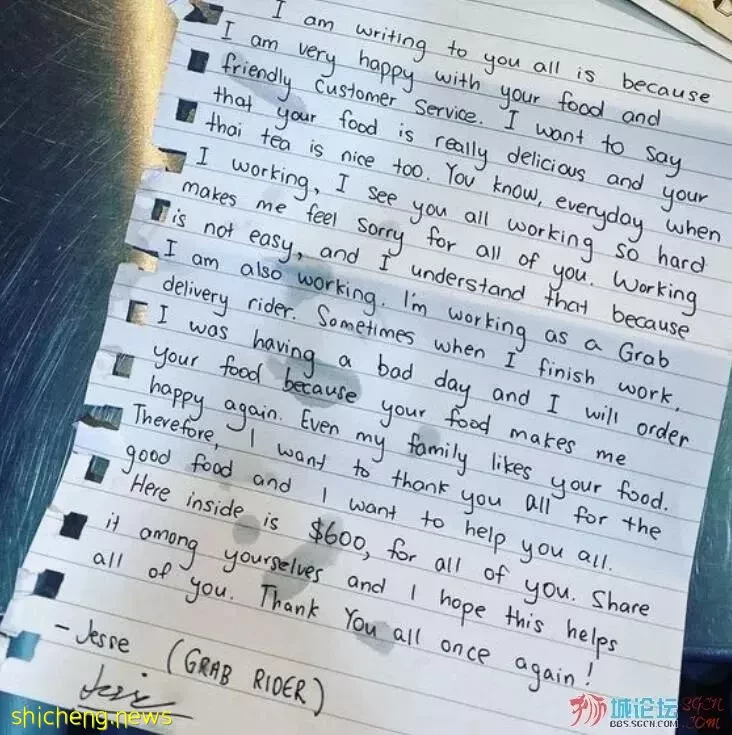 I am writing to you all is because
I am very happy with your food and
friendly customer service. I want to say
that your food is really delicious and your
thai tea is nice too. You know, everyday when
I working, I see you all working so hard
makes me feel sorry for all of you. Working
is not easy, and I understand that because
I am also working. I'm working as a Grab
delivery rider. Sometimes when I finish work,
I was having a bad day and I will order
your food because your food makes me
happy again. Even my family likes your food.
Therefore, I want to thank you all for the
good food and I want to help you all.
Here inside is $600, for all of you. Share
it among yourselves and I hope this helps
all of you. Thank You all once again!
- Jesse (GRAB RIDER)
Jessie
shicheng.news
狮城论坛
BBS.SGCN.COM
SGCN
.COM